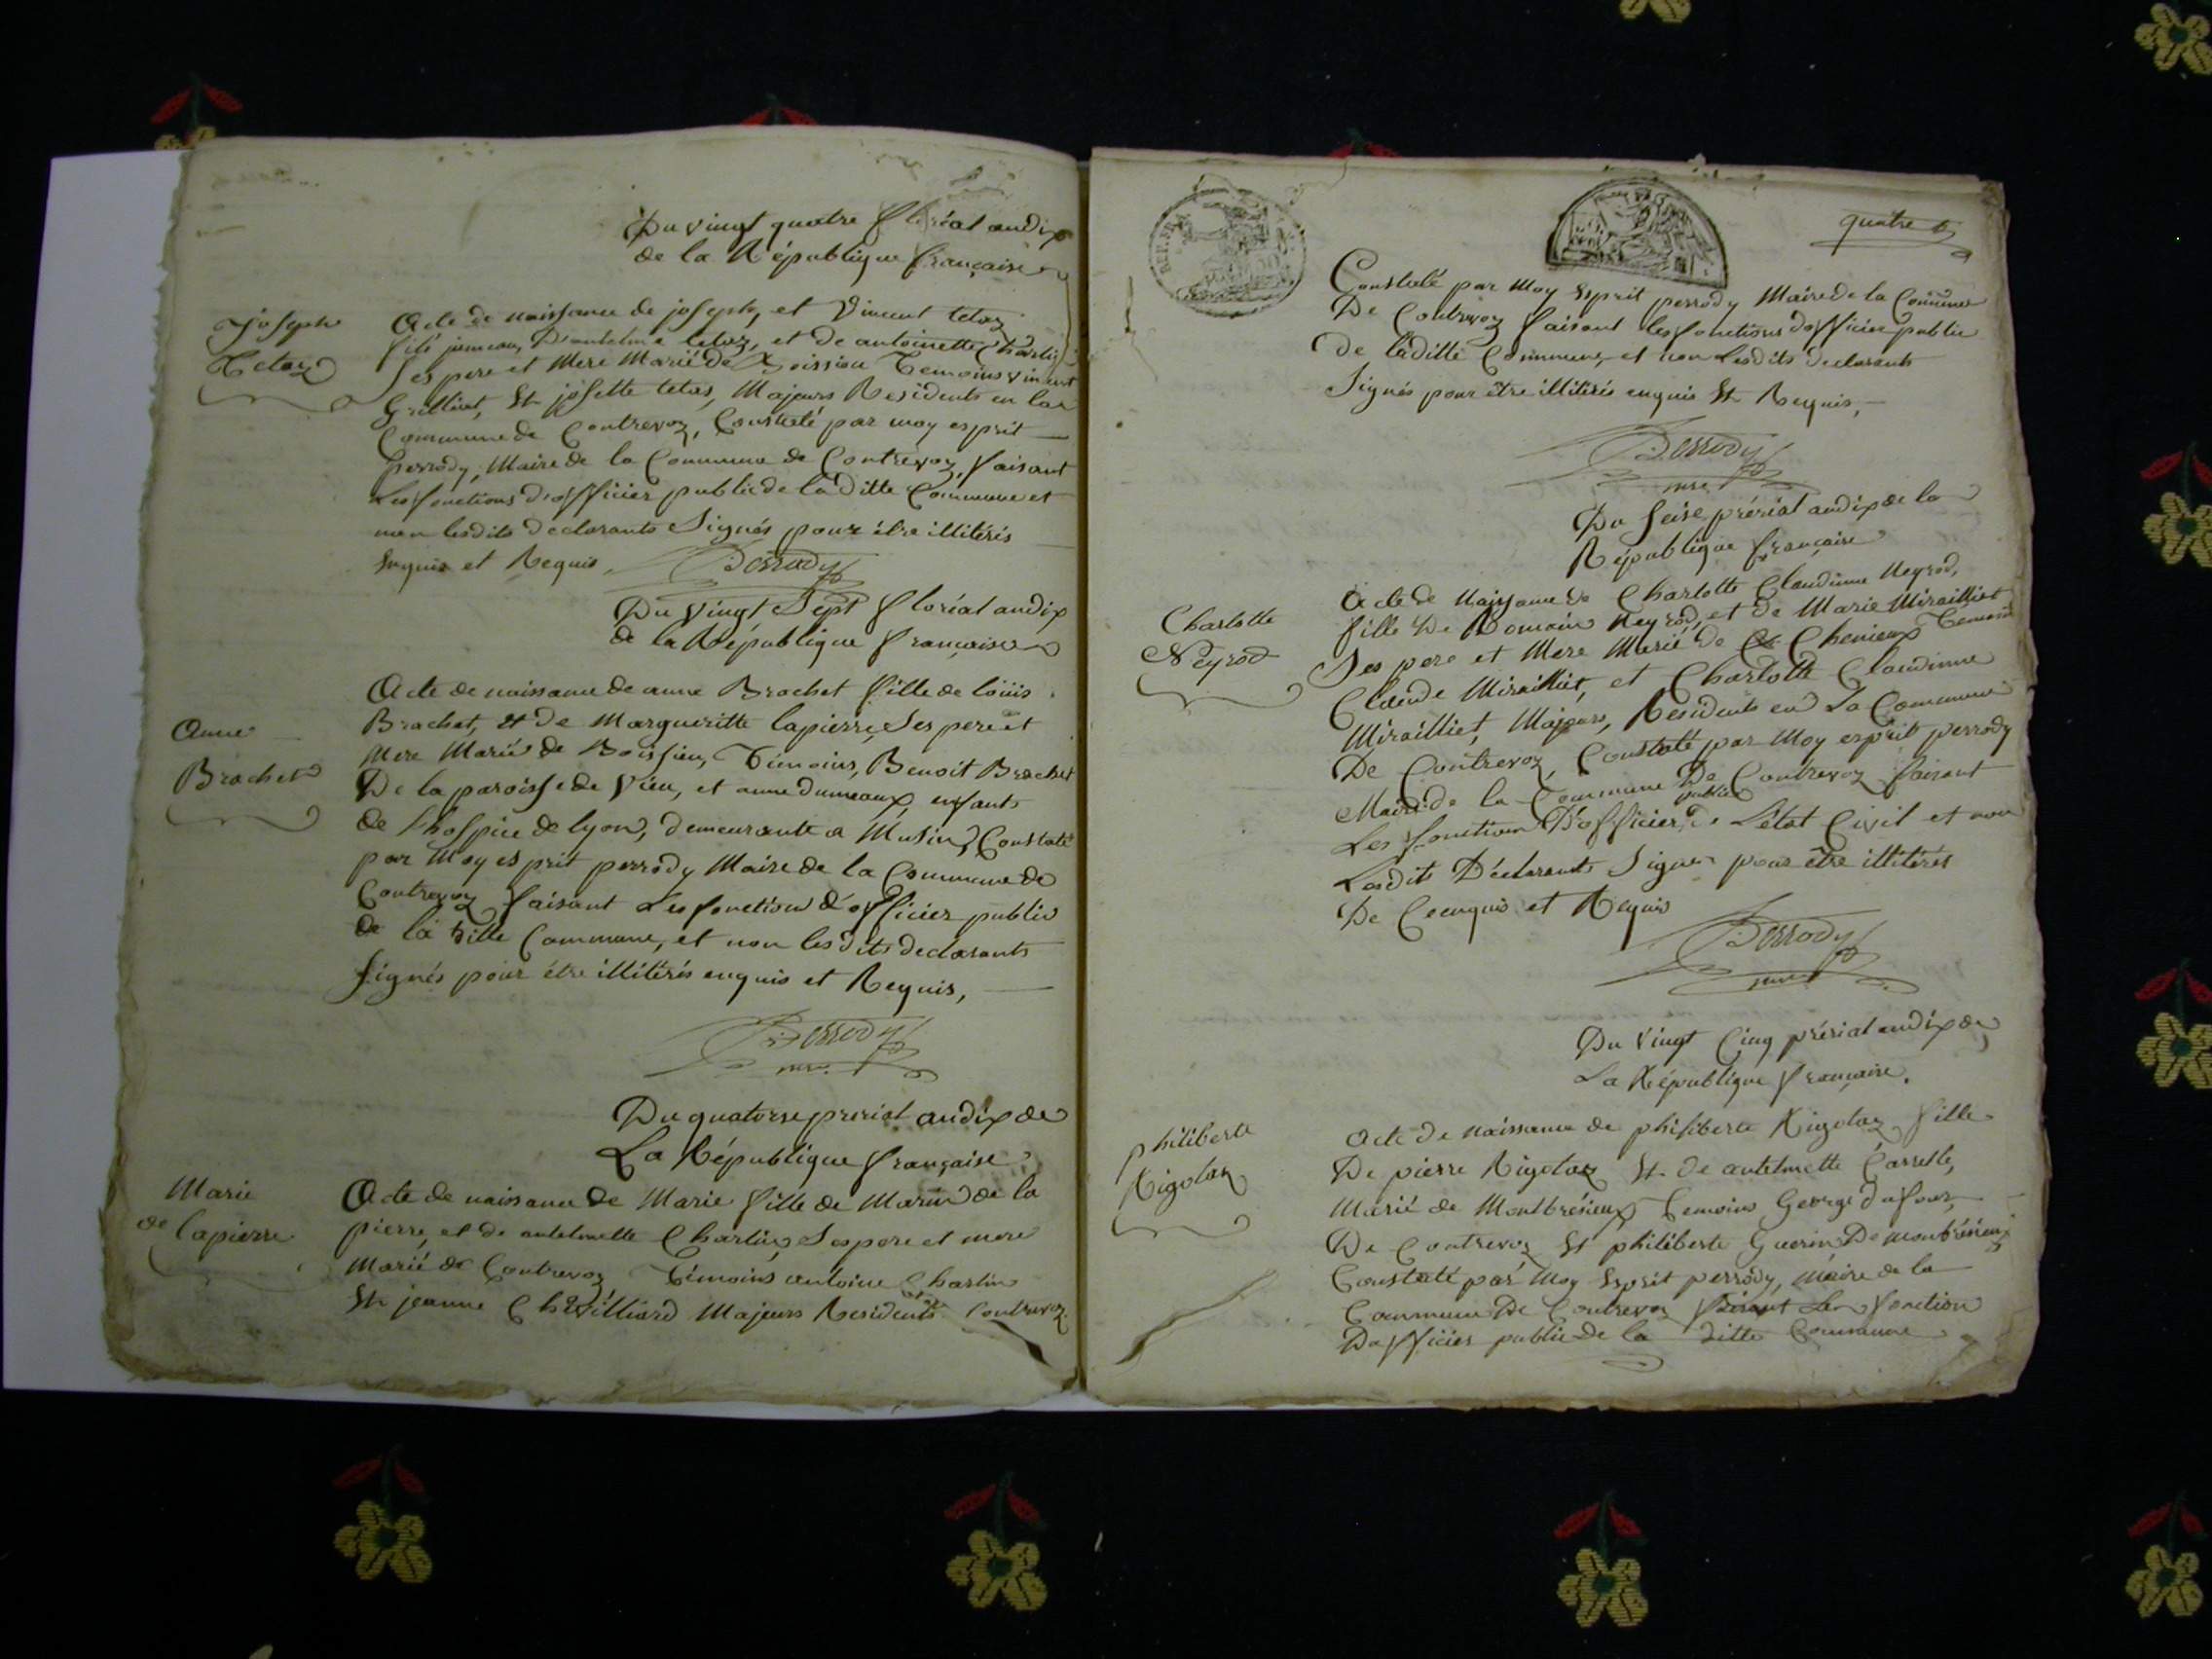 Du vingt quatre floréal an dix
de la République française
Joseph
Tetaz
Acte de naissance de joseph, et Vincent tetaz
fils jumeaux D'antelme tetaz, et de antoinette Charlin
Ses pere et Mere Marié de Boissieu Temoins vincent
Grilliet, Et josette tetas, Majeurs Residents en la
Commune de Contrevoz, Constaté par moy esprit
perrody, Maire de la Commune de Contrevoz, faisant
Les fonctions d'officier public de la ditte Commune et
non lesdits declarants Signés pour étre illitérés
Enquis et Requis,
Perrody
Du Vingt Sept floréal an dix
de la République française
Anne
Brachet
Acte de naissance de anne Brachet fille de löüis
Brachet, et de Margueritte lapierre, Ses pere et
Mere Marié de Boissieu, Témoins, Benoit Brachet
De la paroisse de Vieu, et anne dumeaux, enfants
de L'hospice de lyon, demeurante a Musin, Constaté
par Moy esprit perrody Maire de la Commune de
Contrevoz faisant Les fonction d'officier public
de la ditte Commune, et non lesdits declarants
Signés pour étre illitérés enquis et Requis,
Perrody
mre
Du quatorse preriat an dix de
La République française
Marie
de lapierre
Acte de naissance de Marie fille de Marin de la
pierre, et de antelmette Charlin, Ses pere et mere
Marié de Contrevoz Témoins antoine Charlin
Et jeanne Chevilliard Majeurs Residents Contrevoz
REP. FRA.
quatre
Constaté par Moy Esprit perrody Maire de la Commune
De Contrevoz faisant les fonctions d'officier public
De laditte Commune, et non Lesdits declarants
Signés pour être illitérés enquis Et Requis,
Perrody
mre
Du Seise prériat an dix de la
République française
Charlotte
Neyrod
Acte de Naissance de Charlotte Claudinne Neyrod,
fille De Romain Neyrod, et de Marie Mirailliet
Ses pere et Mere Marié de Chenieux Temoins
Claude Mirailliet, et Charlotte Claudinne
Mirailliet, Majeurs, Residents en La Commune
De Contrevoz, Constaté par Moy esprit perrody
Maire de la Commune De Contrevoz faisant
Les fonction D'officier public de L'état Civil et non
Lesdits Déclarants Signer pour être illitérés
De Ce enquis et Requis
Perrody
mre
Du Vingt Cinq prériat an dix de
La République française.
philiberte
Rigolaz
Acte de Naissance de philiberte Rigolaz fille
De pierre Rigolaz Et de antelmette Carrelle,
Marié de Montbrésieux Temoins George dufour,
De Contrevoz Et philiberte Guerin De montbrésieux
Constaté par Moy Esprit perrody, maire de la
Commune De Contrevoz faisant Les fonction
D'officier public de la ditte Commune